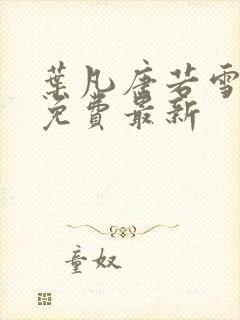 葉凡唐若雪
免費最新
童奴